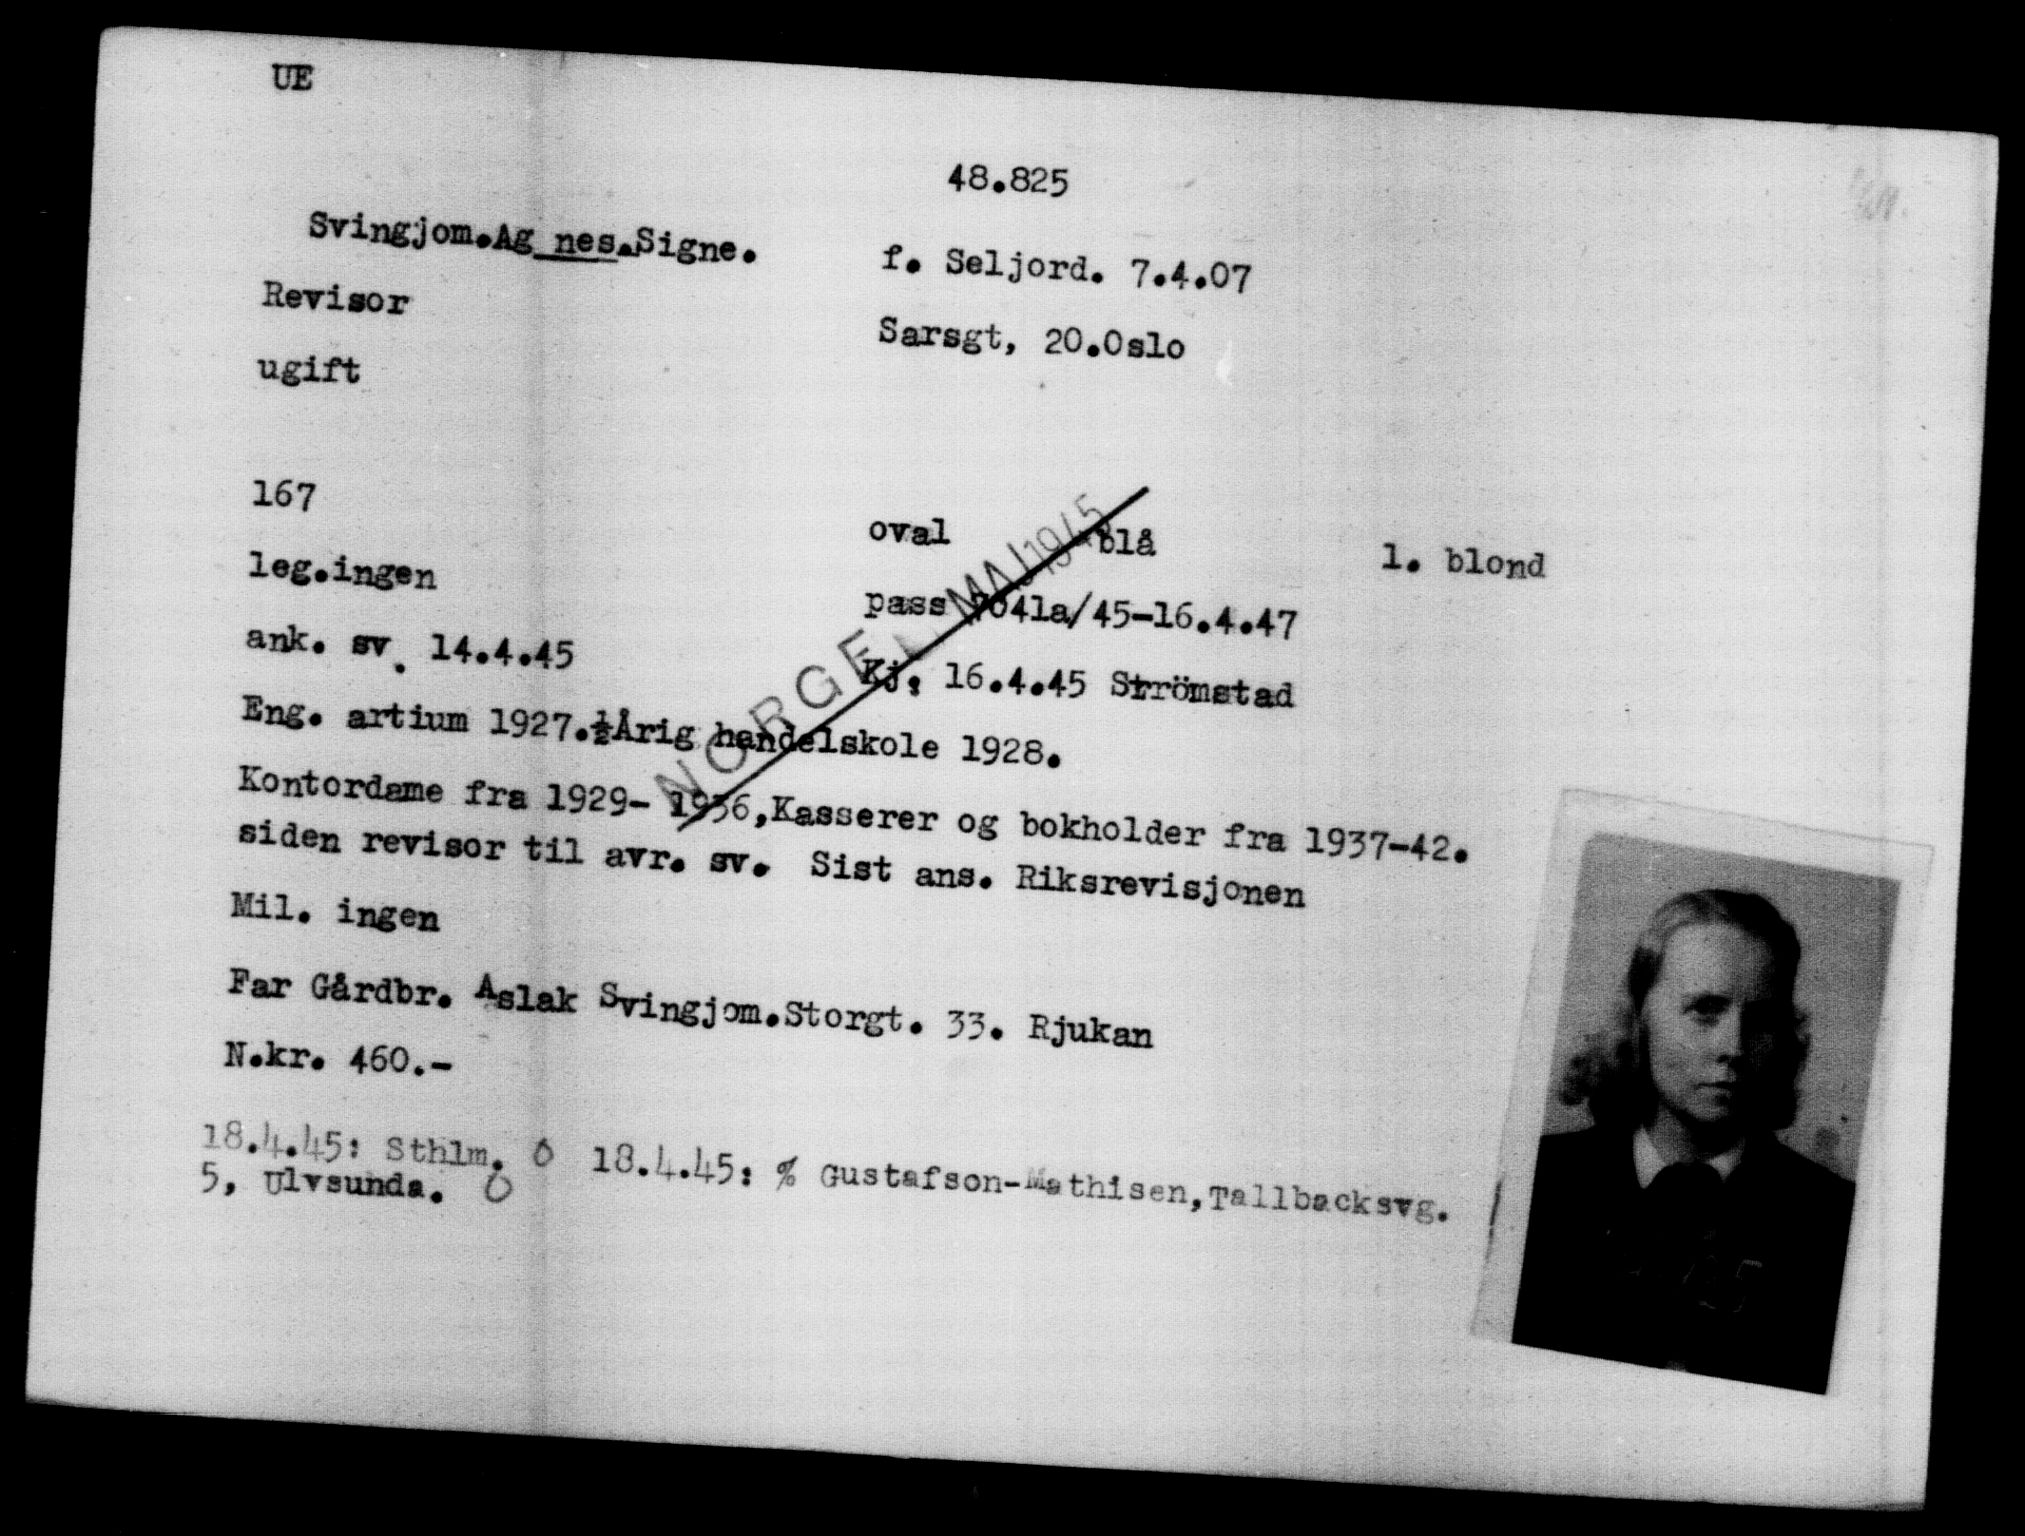 UE
48.825
Svingjom.Ag nes.Signe.
f. Seljord. 7.4.07
Revisor
Sarsgt, 20.Oslo
ugift
167
oval
blå
l. blond
leg.ingen
pass 7041a/45-16.4.47
ank. sv. 14.4.45
Kj. 16.4.45 Strömstad
NORGE MAJ 1945
Eng. artium 1927.½Årig handelskole 1928.
Kontordame fra 1929- 1936,Kasserer og bokholder fra 1937-42.
siden revisor til avr. sv. Sist ans. Riksrevisjonen
Mil. ingen
Far Gårdbr. Aslak Svingjom.Storgt. 33. Rjukan
N.kr. 460.-
18.4.45: Sthlm. Ó 18.4.45: % Gustafson-Mathisen,Tallbacksvg.
5, Ulvsunda. Ó